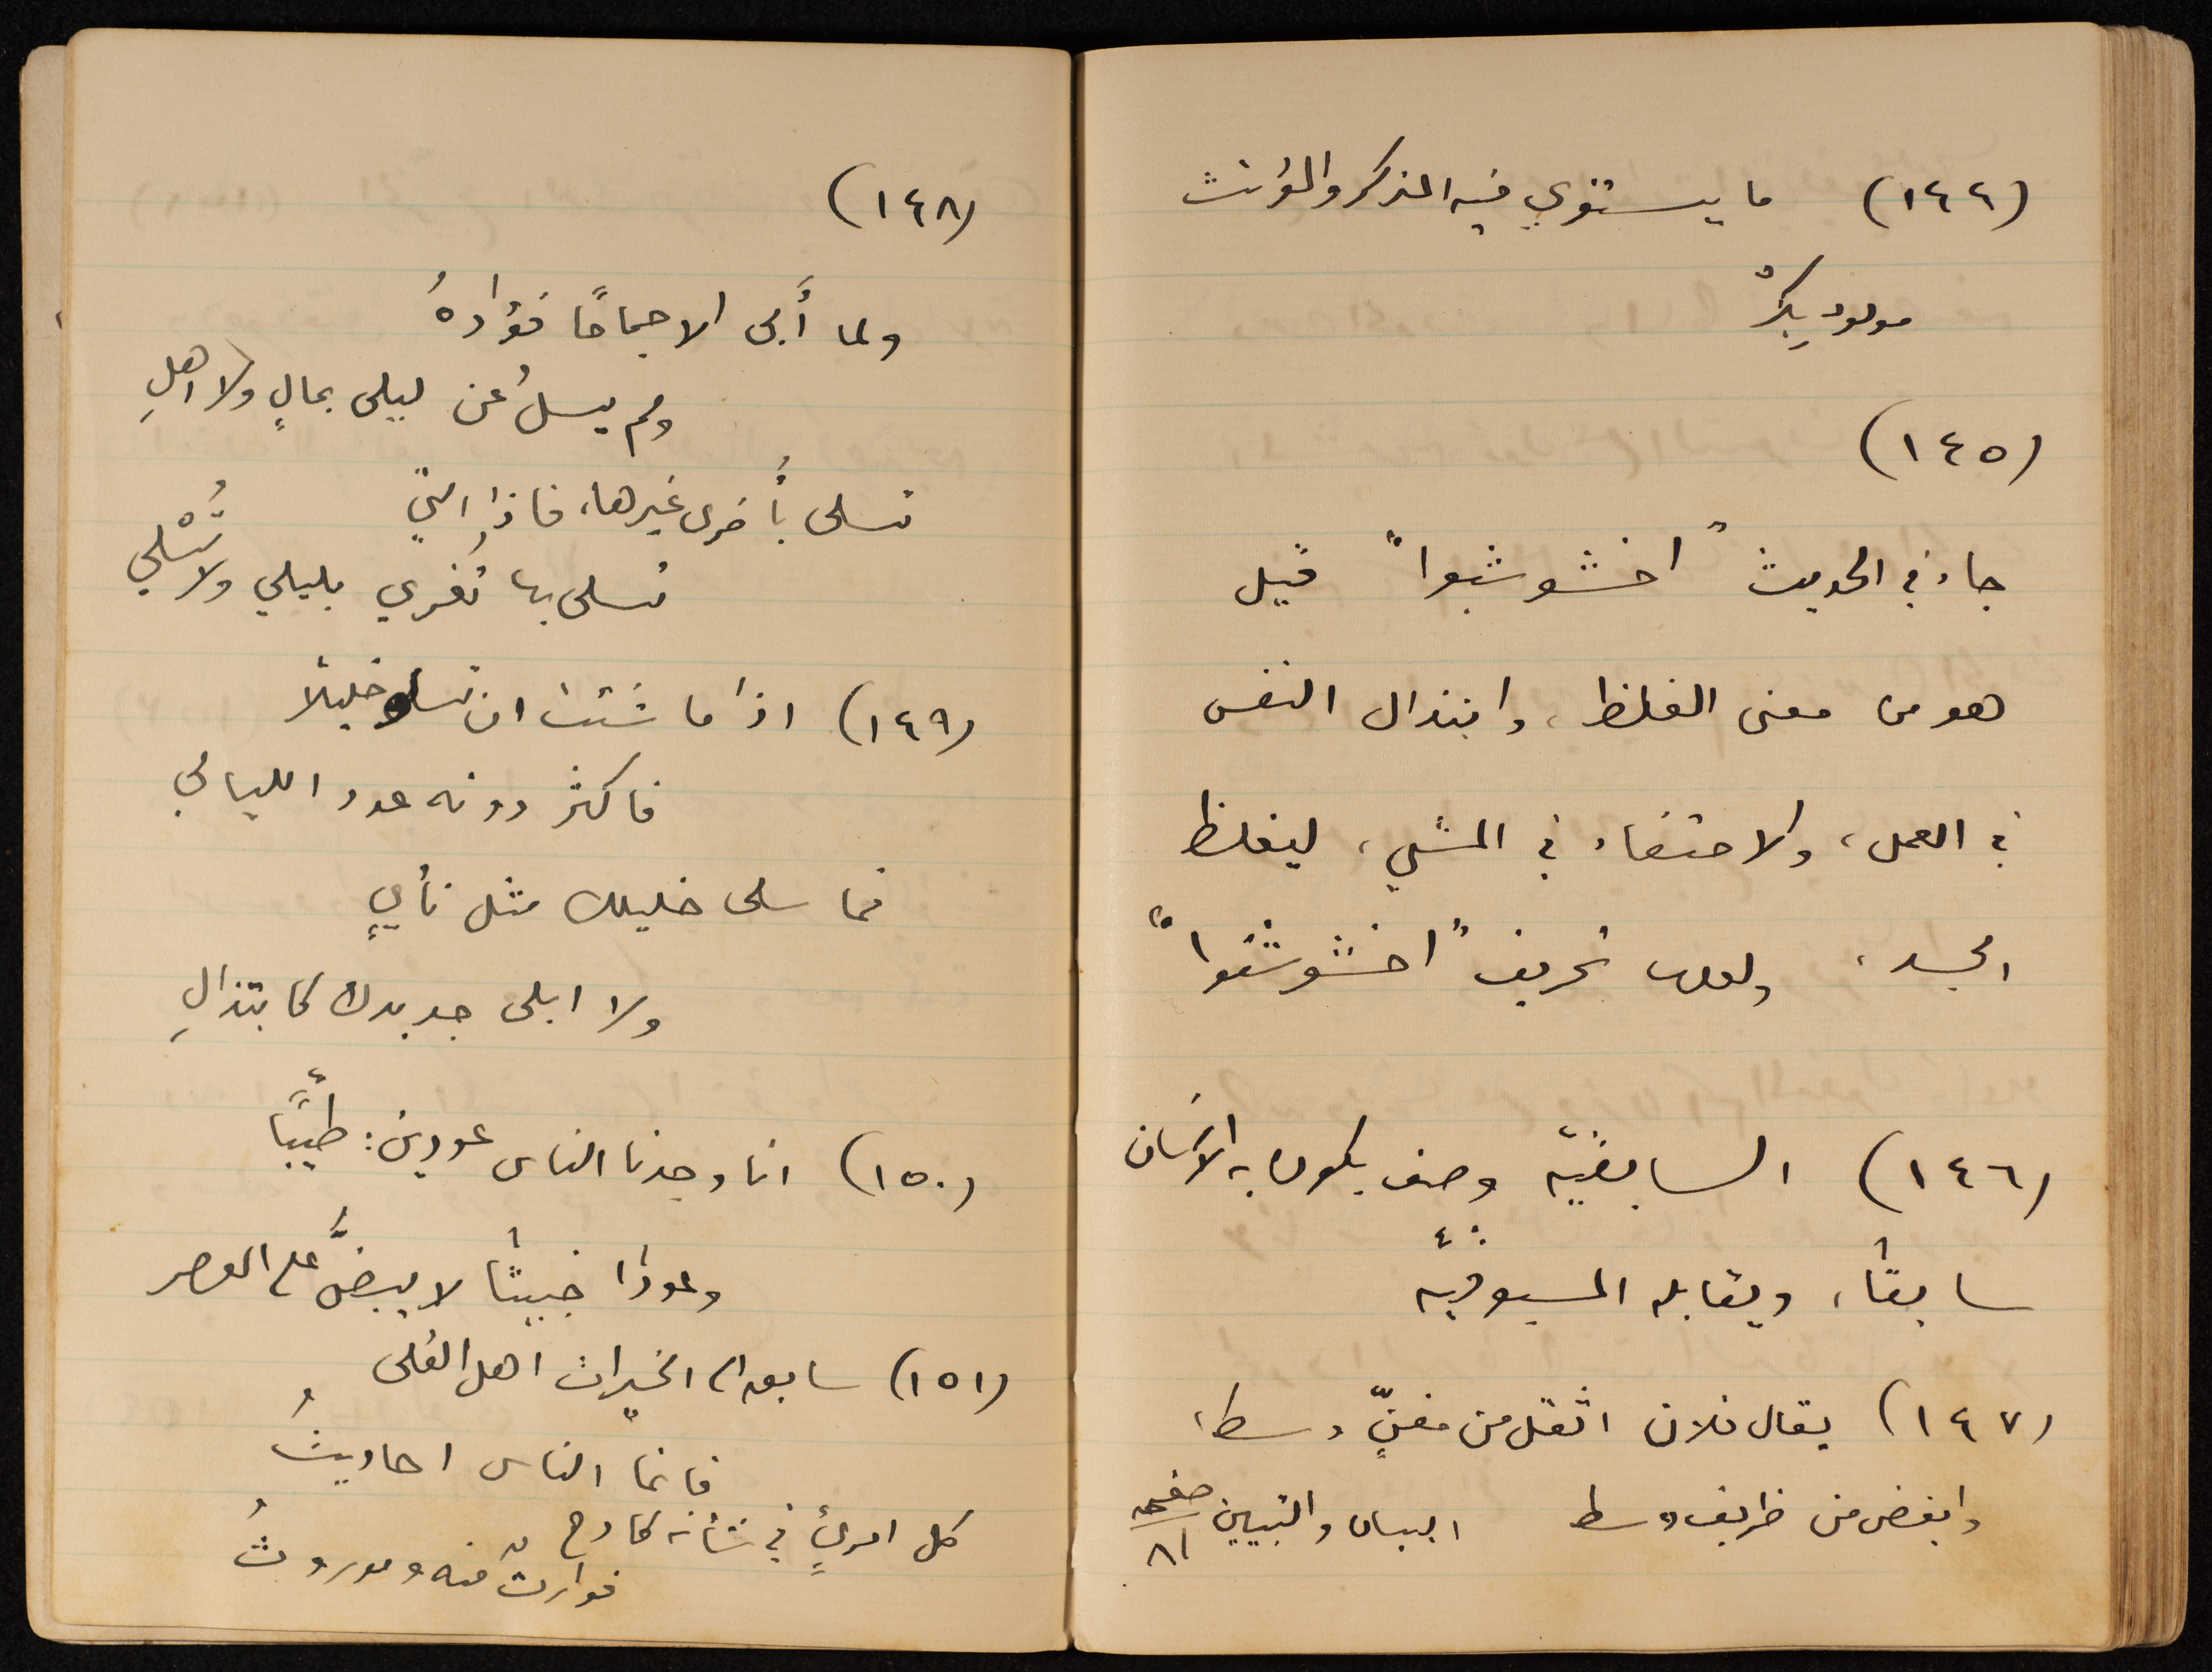 (١٤٤) ما يستوي فيه المذكر والمؤنث
مولود بِكرٌ
(١٤٥)
جاء في الحديث "اخشوشبوا" قيل
هو من معنى الغلظ، وابتذال النفس
في العمل، والاحتفاء في المشي، ليغلظ
الجسد، ولعلها تحريف "اخشوشنوا"
(١٤٦) السابقيّه وصف يكون به الانسان
سابقاً، ويقابله المسبوقيّه
(١٤٧) يقال فلان اثقل من مغنٍّ وسط،
وابغض من ظريف وسط البيان والتبيين صفحه ٨١
(١٤٨)
ولما أَبى الا جماحًا فؤادهُ
ولم يسلُ عن ليلى بمالٍ ولا اهلِ
تسلى بأُخرى غيرها، فاذا التي
تسلى بها تُغري بليلي ولا تُسْلي
(١٤٩) اذا ما شئت ان تسلو خليلا
فاكثر دونه عدد الليالي
فما سلى خليلك مثل نأيٍ
ولا ابلى جديدك كابتذالِ
(١٥٠) انا وجدنا الناس عودين: طيّبًا
وعودًا خبيثًا لا يبضُّ على العصر
(١٥١) سابق الى الخيرات اهل العُلى
فانما الناس احاديثُ
كل امرئٍ في شأنه كادح
فوارثٌ منه وموروثُ